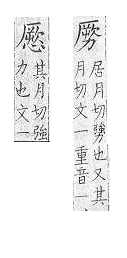 居月切勥也又其
月切文一重音一
其月切強
力也文一